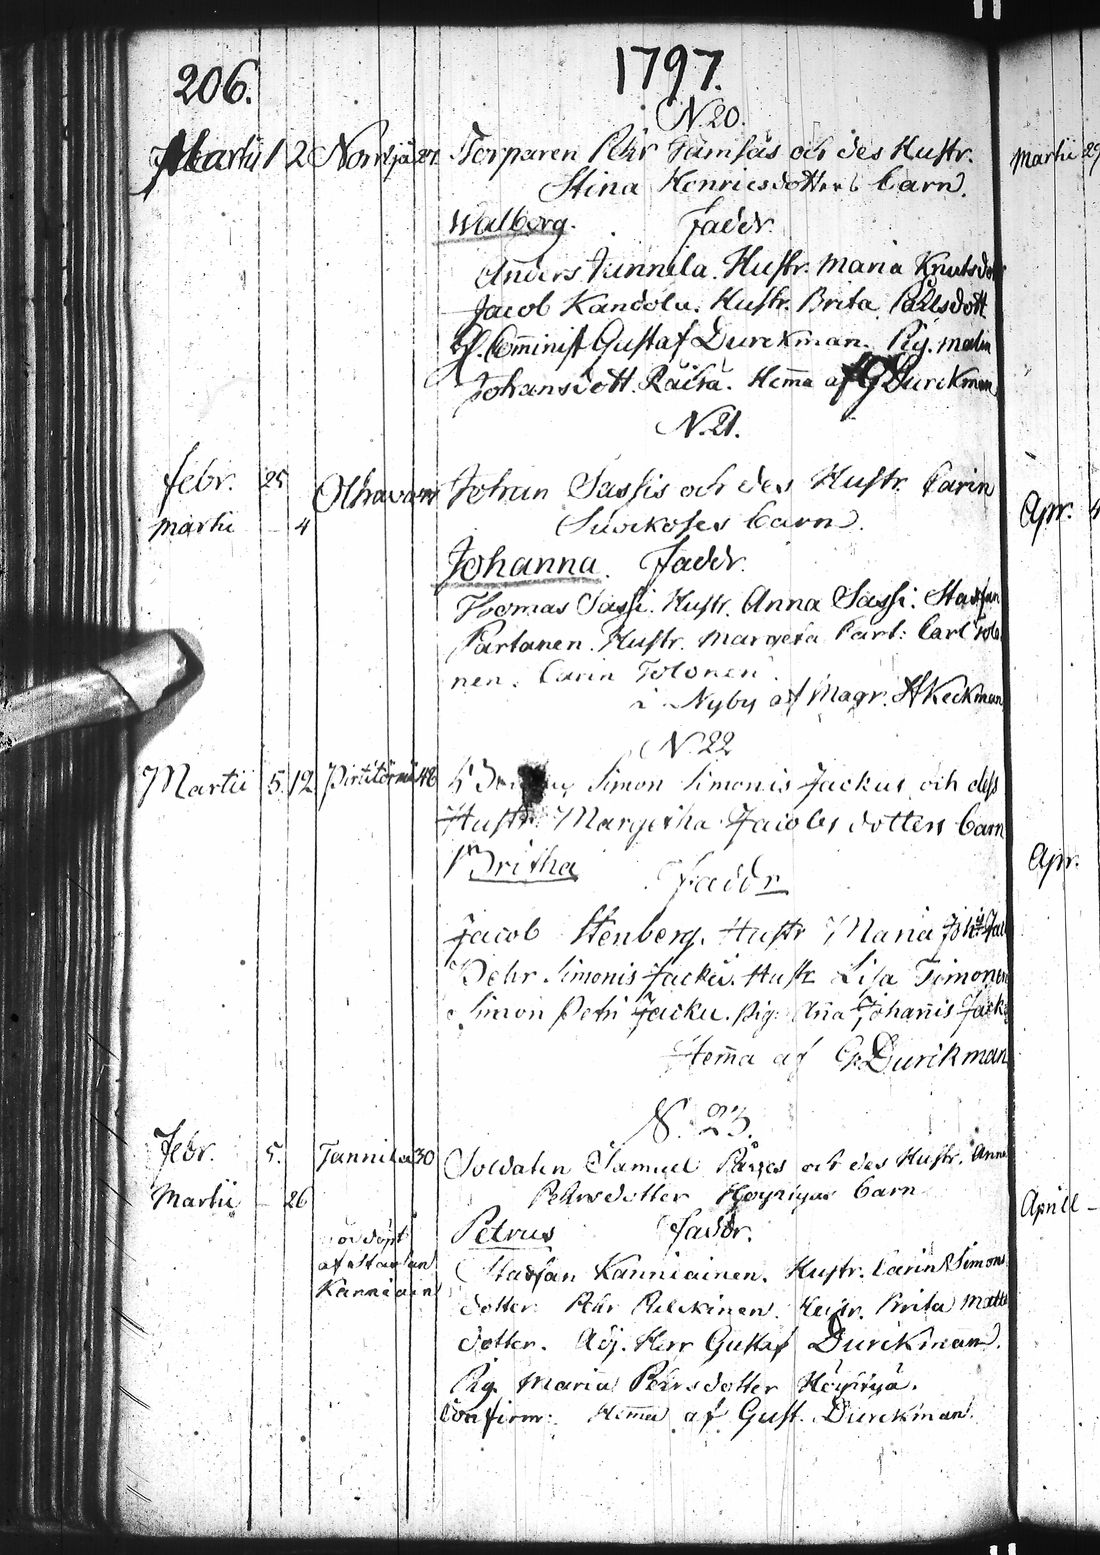 206.
1797.
N. 20.
Martii 1 2 Norrljä 27. Torparen Pehr Jämsäs och des Hustr.
Stina Henricsdotters barn.
Walborg. Faddr.
Anders Junnila. Hustr. Maria Knutsdott
Jacob Kandolu. Hustr. Brita Påhlsdott
Gustaf Durckman. Pig. Malin
Johansdott. Räihä. Hem̄a af G Durckman
N. 21.
Febr. 25 Olhavaar Johan Sassis och des Hustr. Carin
Martii 4 barn.
Johanna. Faddr.
Thomas Sassi. Hustr. Anna Sassi. Staffan
Partanen. Hustr. Margeta Part: Carl Tolo
nen. Carin Tolonen.
i Nyby af Magr. Keckman
N. 22
Martii 5. 12 48 Simon Simonis Jackus och dess
Hustr. Margetha Jacobs dotters barn
Britha
Faddr
Jacob Stenberg. Hustr Maria
Pehr Simonis Jacku. Hustr Lisa Timonen
Simon Petri Jacku. Pig. An̄a Johan̄is Jack
Hem̄a af G. Durikman
N. 23.
Febr. 5. Tannila 30 Soldaten Samuel och des Hustr. Anna
Martii 26 Pehrsdotter barn
Petrus Faddr.
af Staffan
Kanniain
Staffan Kanniainen. Hustr. Carin Simons
dotter. Pehr Pelckinen. Hustr. Brita Matts
dotter. Adj. Herr Gustaf Durckman.
Pig. Maria Pehrsdotter Höyryjä.
Confirm: Hem̄a af Gust. Durckman.
Martii 29
Apr. 4
Apr.
Aprill